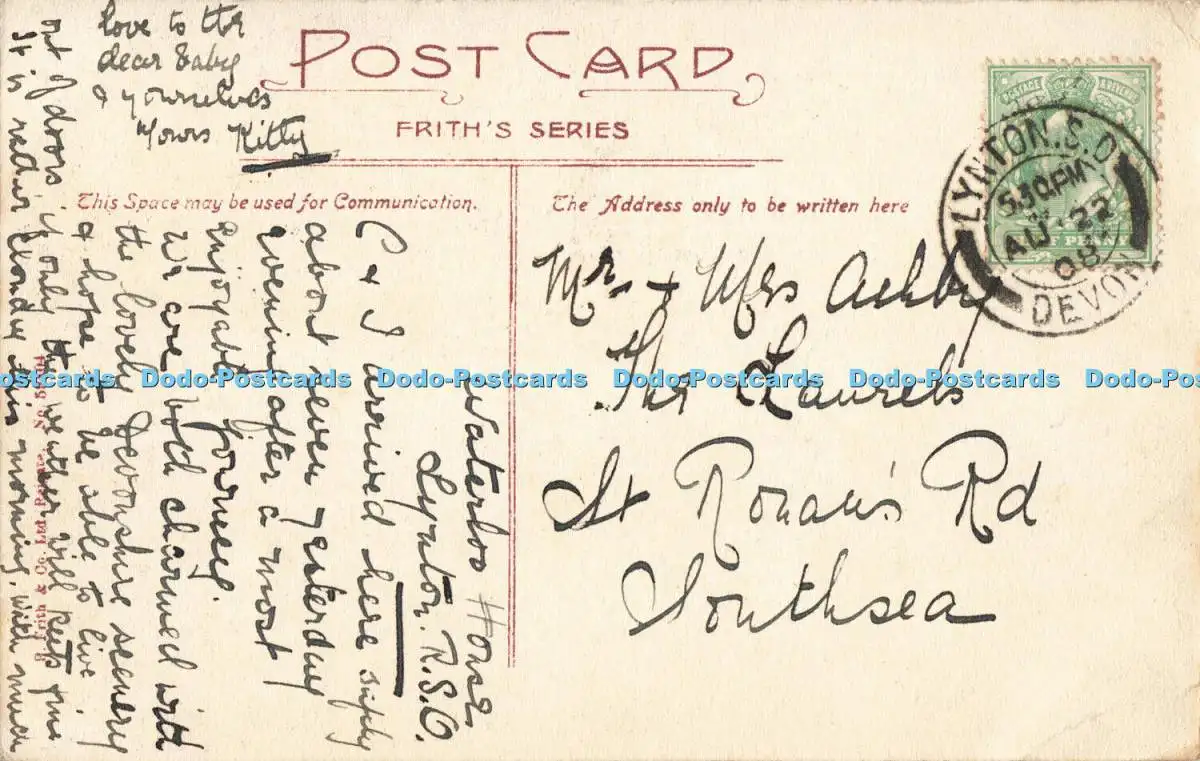 POST CARD
FRITH'S SERIES
This Space may be used for Communication.
The Address only to be written here
LYNTON. S.O
5.30 PM
AU 22
08
DEVON
POSTAGE
HALF PENNY
Mr. & Mrs Ashby
The Laurels
St Ronan's Rd
Southsea
Waterloo House
Lynton. R.S.O.
C & I arrived here safely
about seven yesterday
evening after a most
enjoyable journey.
We are both charmed with
the lovely Devonshire scenery
& hope to be able to live
out of doors if only the weather will keep fine
It is rather cloudy this morning. With much
love to the
dear baby
& yourselves
Yours Kitty
Frith & Co. Ltd.
Dodo-Postcards Dodo-Postcards Dodo-Postcards Dodo-Postcards Dodo-Postcards